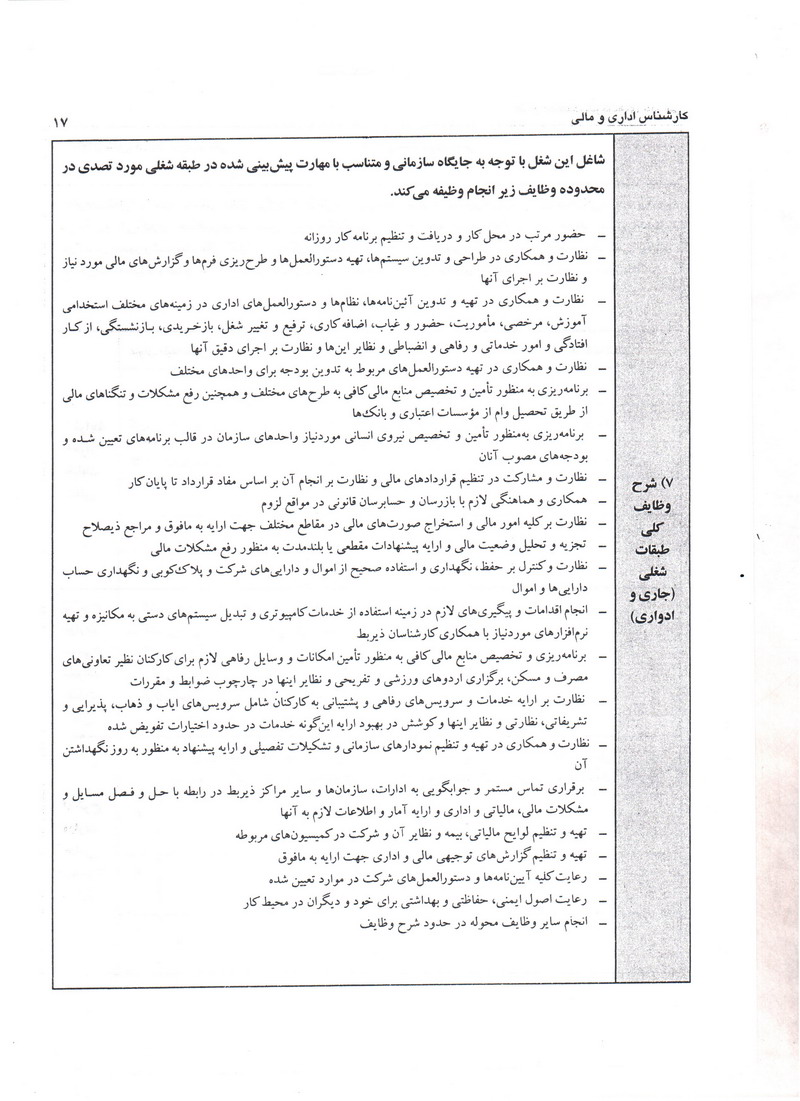 کارشناس اداری و مالی
۱۷
شاغل این شغل با توجه به جایگاه سازمانی و متناسب با مهارت پیش‌بینی شده در طبقه شغلی مورد تصدی در
محدوده وظایف زیر انجام وظیفه می‌کند.
۷) شرح
وظایف
کلی
طبقات
شغلی
(جاری و
ادواری)
– حضور مرتب در محل کار و دریافت و تنظیم برنامه کار روزانه
– نظارت و همکاری در طراحی و تدوین سیستم‌ها، تهیه دستورالعمل‌ها و طرح‌ریزی فرم‌ها و گزارش‌های مالی مورد نیاز
و نظارت بر اجرای آنها
– نظارت و همکاری در تهیه و تدوین آئین‌نامه‌ها، نظام‌ها و دستورالعمل‌های اداری در زمینه‌های مختلف استخدامی
آموزش، مرخصی، مأموریت، حضور و غیاب، اضافه کاری، ترفیع و تغییر شغل، بازخریدی، بازنشستگی، از کار
افتادگی و امور خدماتی و رفاهی و انضباطی و نظایر این‌ها و نظارت بر اجرای دقیق آنها
– نظارت و همکاری در تهیه دستورالعمل‌های مربوط به تدوین بودجه برای واحدهای مختلف
– برنامه‌ریزی به منظور تأمین و تخصیص منابع مالی کافی به طرح‌های مختلف و همچنین رفع مشکلات و تنگناهای مالی
از طریق تحصیل وام از مؤسسات اعتباری و بانک‌ها
– برنامه‌ریزی به‌منظور تأمین و تخصیص نیروی انسانی موردنیاز واحدهای سازمان در قالب برنامه‌های تعیین شده و
بودجه‌های مصوب آنان
– نظارت و مشارکت در تنظیم قراردادهای مالی و نظارت بر انجام آن بر اساس مفاد قرارداد تا پایان کار
– همکاری و هماهنگی لازم با بازرسان و حسابرسان قانونی در مواقع لزوم
– نظارت بر کلیه امور مالی و استخراج صورت‌های مالی در مقاطع مختلف جهت ارایه به مافوق و مراجع ذیصلاح
– تجزیه و تحلیل وضعیت مالی و ارایه پیشنهادات مقطعی یا بلندمدت به منظور رفع مشکلات مالی
– نظارت و کنترل بر حفظ، نگهداری و استفاده صحیح از اموال و دارایی‌های شرکت و پلاک‌کوبی و نگهداری حساب
دارایی‌ها و اموال
– انجام اقدامات و پیگیری‌های لازم در زمینه استفاده از خدمات کامپیوتری و تبدیل سیستم‌های دستی به مکانیزه و تهیه
نرم‌افزارهای موردنیاز با همکاری کارشناسان ذیربط
– برنامه‌ریزی و تخصیص منابع مالی کافی به منظور تأمین امکانات و وسایل رفاهی لازم برای کارکنان نظیر تعاونی‌های
مصرف و مسکن، برگزاری اردوهای ورزشی و تفریحی و نظایر اینها در چارچوب ضوابط و مقررات
– نظارت بر ارایه خدمات و سرویس‌های رفاهی و پشتیبانی به کارکنان شامل سرویس‌های ایاب و ذهاب، پذیرایی و
تشریفاتی، نظارتی و نظایر اینها و کوشش در بهبود ارایه این‌گونه خدمات در حدود اختیارات تفویض شده
– نظارت و همکاری در تهیه و تنظیم نمودارهای سازمانی و تشکیلات تفصیلی و ارایه پیشنهاد به منظور به روز نگهداشتن
آن
– برقراری تماس مستمر و جوابگویی به ادارات، سازمان‌ها و سایر مراکز ذیربط در رابطه با حل و فصل مسایل و
مشکلات مالی، مالیاتی و اداری و ارایه آمار و اطلاعات لازم به آنها
– تهیه و تنظیم لوایح مالیاتی، بیمه و نظایر آن و شرکت در کمیسیون‌های مربوطه
– تهیه و تنظیم گزارش‌های توجیهی مالی و اداری جهت ارایه به مافوق
– رعایت کلیه آیین‌نامه‌ها و دستورالعمل‌های شرکت در موارد تعیین شده
– رعایت اصول ایمنی، حفاظتی و بهداشتی برای خود و دیگران در محیط کار
– انجام سایر وظایف محوله در حدود شرح وظایف